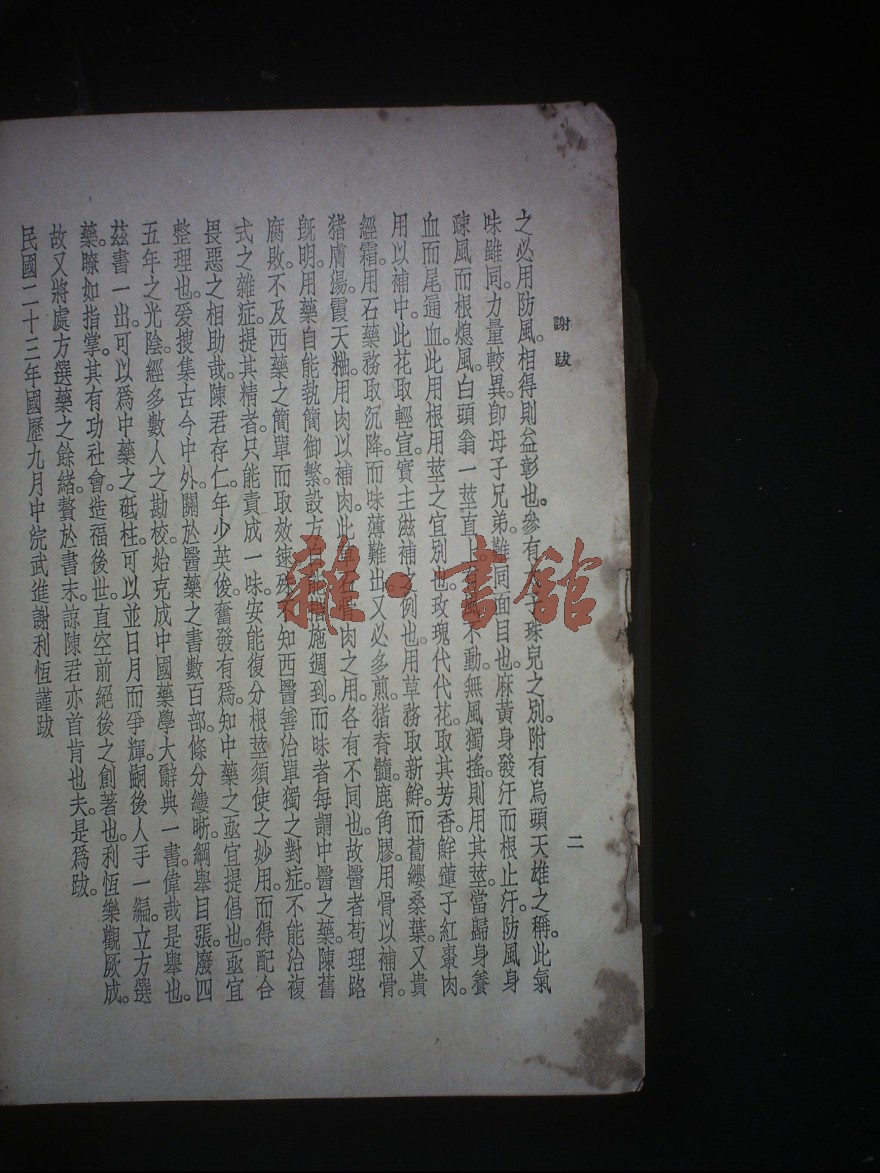 謝跋
二
之必用防風。相得則益彰也。參有珠兒之別。附有烏頭天雄之稱。此氣
味雖同。力量較異。卽母子兄弟。難同面目也。麻黃身發汗而根止汗。防風身
疎風而根熄風。白頭翁一莖直上。不動。無風獨搖。則用其莖。當歸身養
血而尾通血。此用根用莖之宜別也。玫瑰代代花。取其芳香。鮮蓮子紅棗肉。
用以補中。此花取輕宣。實主滋補之例也。用草務取新鮮。而蔔纓桑葉。又貴
經霜。用石藥務取沉降。而味薄難出。又必多煎。猪脊髓。鹿角膠。用骨以補骨。
猪膚湯。霞天粬。用肉以補肉。此骨肉之用。各有不同也。故醫者苟理路
旣明。用藥自能執簡御繁。設方自能措施週到。而昧者每謂中醫之藥。陳舊
腐敗。不及西藥之簡單而取效速。殊不知西醫善治單獨之對症。不能治複
式之雜症。提其精者。只能責成一味。安能復分根莖須使之妙用。而得配合
畏惡之相助哉。陳君存仁。年少英俊。奮發有爲。知中藥之亟宜提倡也。亟宜
整理也。爰搜集古今中外。關於醫藥之書數百部。條分縷晰。綱舉目張。廢四
五年之光陰。經多數人之勘校。始克成中國藥學大辭典一書。偉哉是舉也。
茲書一出。可以爲中藥之砥柱。可以並日月而爭輝。嗣後人手一編。立方選
藥。瞭如指掌。其有功社會。造福後世。直空前絕後之創著也。利恆樂觀厥成。
故又將處方選藥之餘緒。贅於書末。諒陳君亦首肯也夫。是爲跋。
民國二十三年國歷九月中浣武進謝利恆謹跋
雜·書館